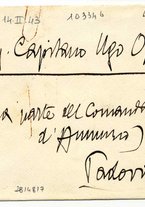 14 II 43 103346
Capitano Ugo O
parte del Comando
d'Annunzio)
Padova
2814817